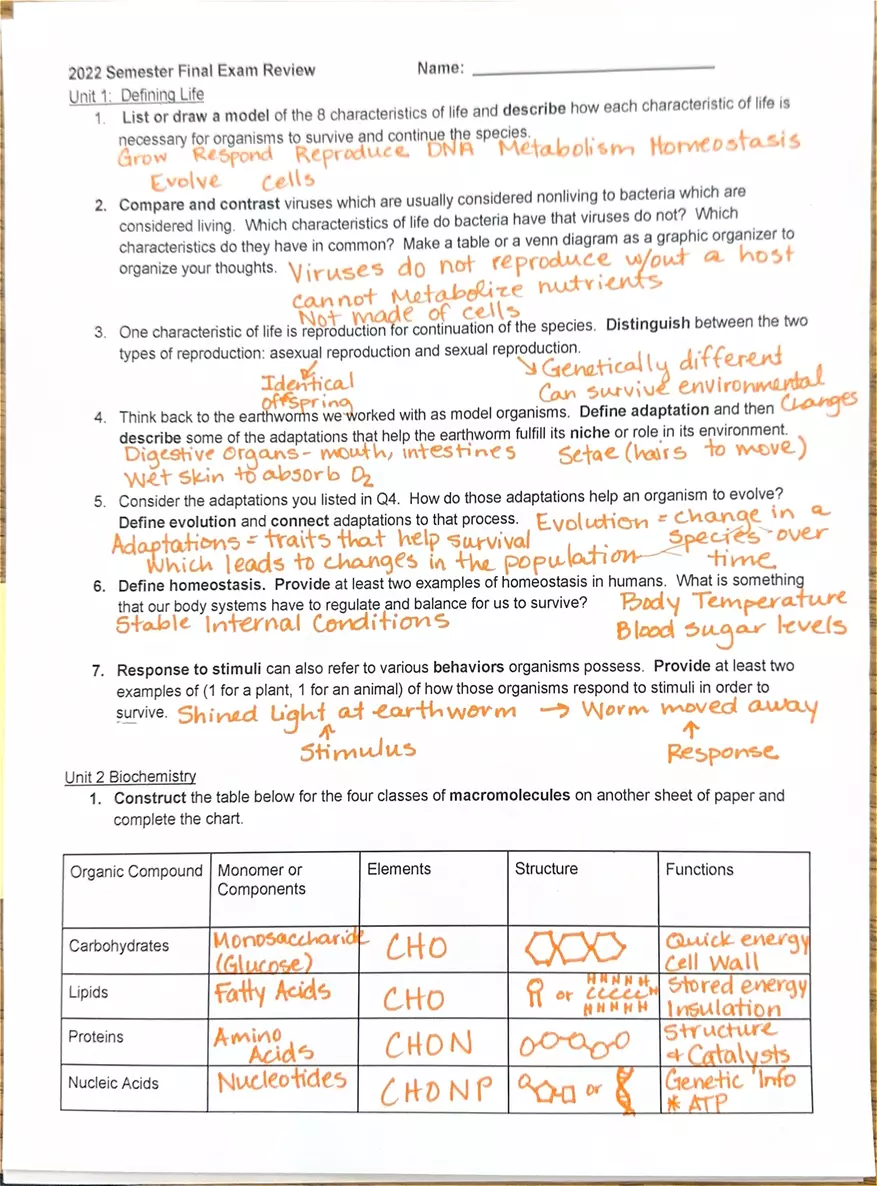 2022 Semester Final Exam Review Name:
Unit 1: Defining Life
1. List or draw a model of the 8 characteristics of life and describe how each characteristic of life is
necessary for organisms to survive and continue the species.
Grow Respond Reproduce DNA Metabolism Homeostasis
Evolve Cells
2. Compare and contrast viruses which are usually considered nonliving to bacteria which are
considered living. Which characteristics of life do bacteria have that viruses do not? Which
characteristics do they have in common? Make a table or a venn diagram as a graphic organizer to
organize your thoughts. Viruses do not reproduce w/out a host
cannot Metabolize nutrients
Not made of cells
3. One characteristic of life is reproduction for continuation of the species. Distinguish between the two
types of reproduction: asexual reproduction and sexual reproduction.
Identical
offspring
Genetically different
Can survive environmental
changes
4. Think back to the earthworms we worked with as model organisms. Define adaptation and then
describe some of the adaptations that help the earthworm fulfill its niche or role in its environment.
Digestive Organs - mouth, intestines Setae (hairs to move)
Wet skin to absorb O2
5. Consider the adaptations you listed in Q4. How do those adaptations help an organism to evolve?
Define evolution and connect adaptations to that process. Evolution = change in a
species over
time
Adaptations = traits that help survival
which leads to changes in the population
6. Define homeostasis. Provide at least two examples of homeostasis in humans. What is something
that our body systems have to regulate and balance for us to survive? Body Temperature
Stable Internal Conditions Blood sugar levels
7. Response to stimuli can also refer to various behaviors organisms possess. Provide at least two
examples of (1 for a plant, 1 for an animal) of how those organisms respond to stimuli in order to
survive. Shined Light at earthworm → Worm moved away
↑ ↑
Stimulus Response
Unit 2 Biochemistry
1. Construct the table below for the four classes of macromolecules on another sheet of paper and
complete the chart.
Organic Compound Monomer or Elements Structure Functions
Components
Carbohydrates Monosaccharide CHO Quick energy
(Glucose) Cell Wall
Lipids Fatty Acids CHO or Stored energy
HHHHH
CCCCCH
HHHHH
Insulation
Proteins Amino CHON Structure
Acids + Catalysts
Nucleic Acids Nucleotides CHONP or Genetic Info
* ATP